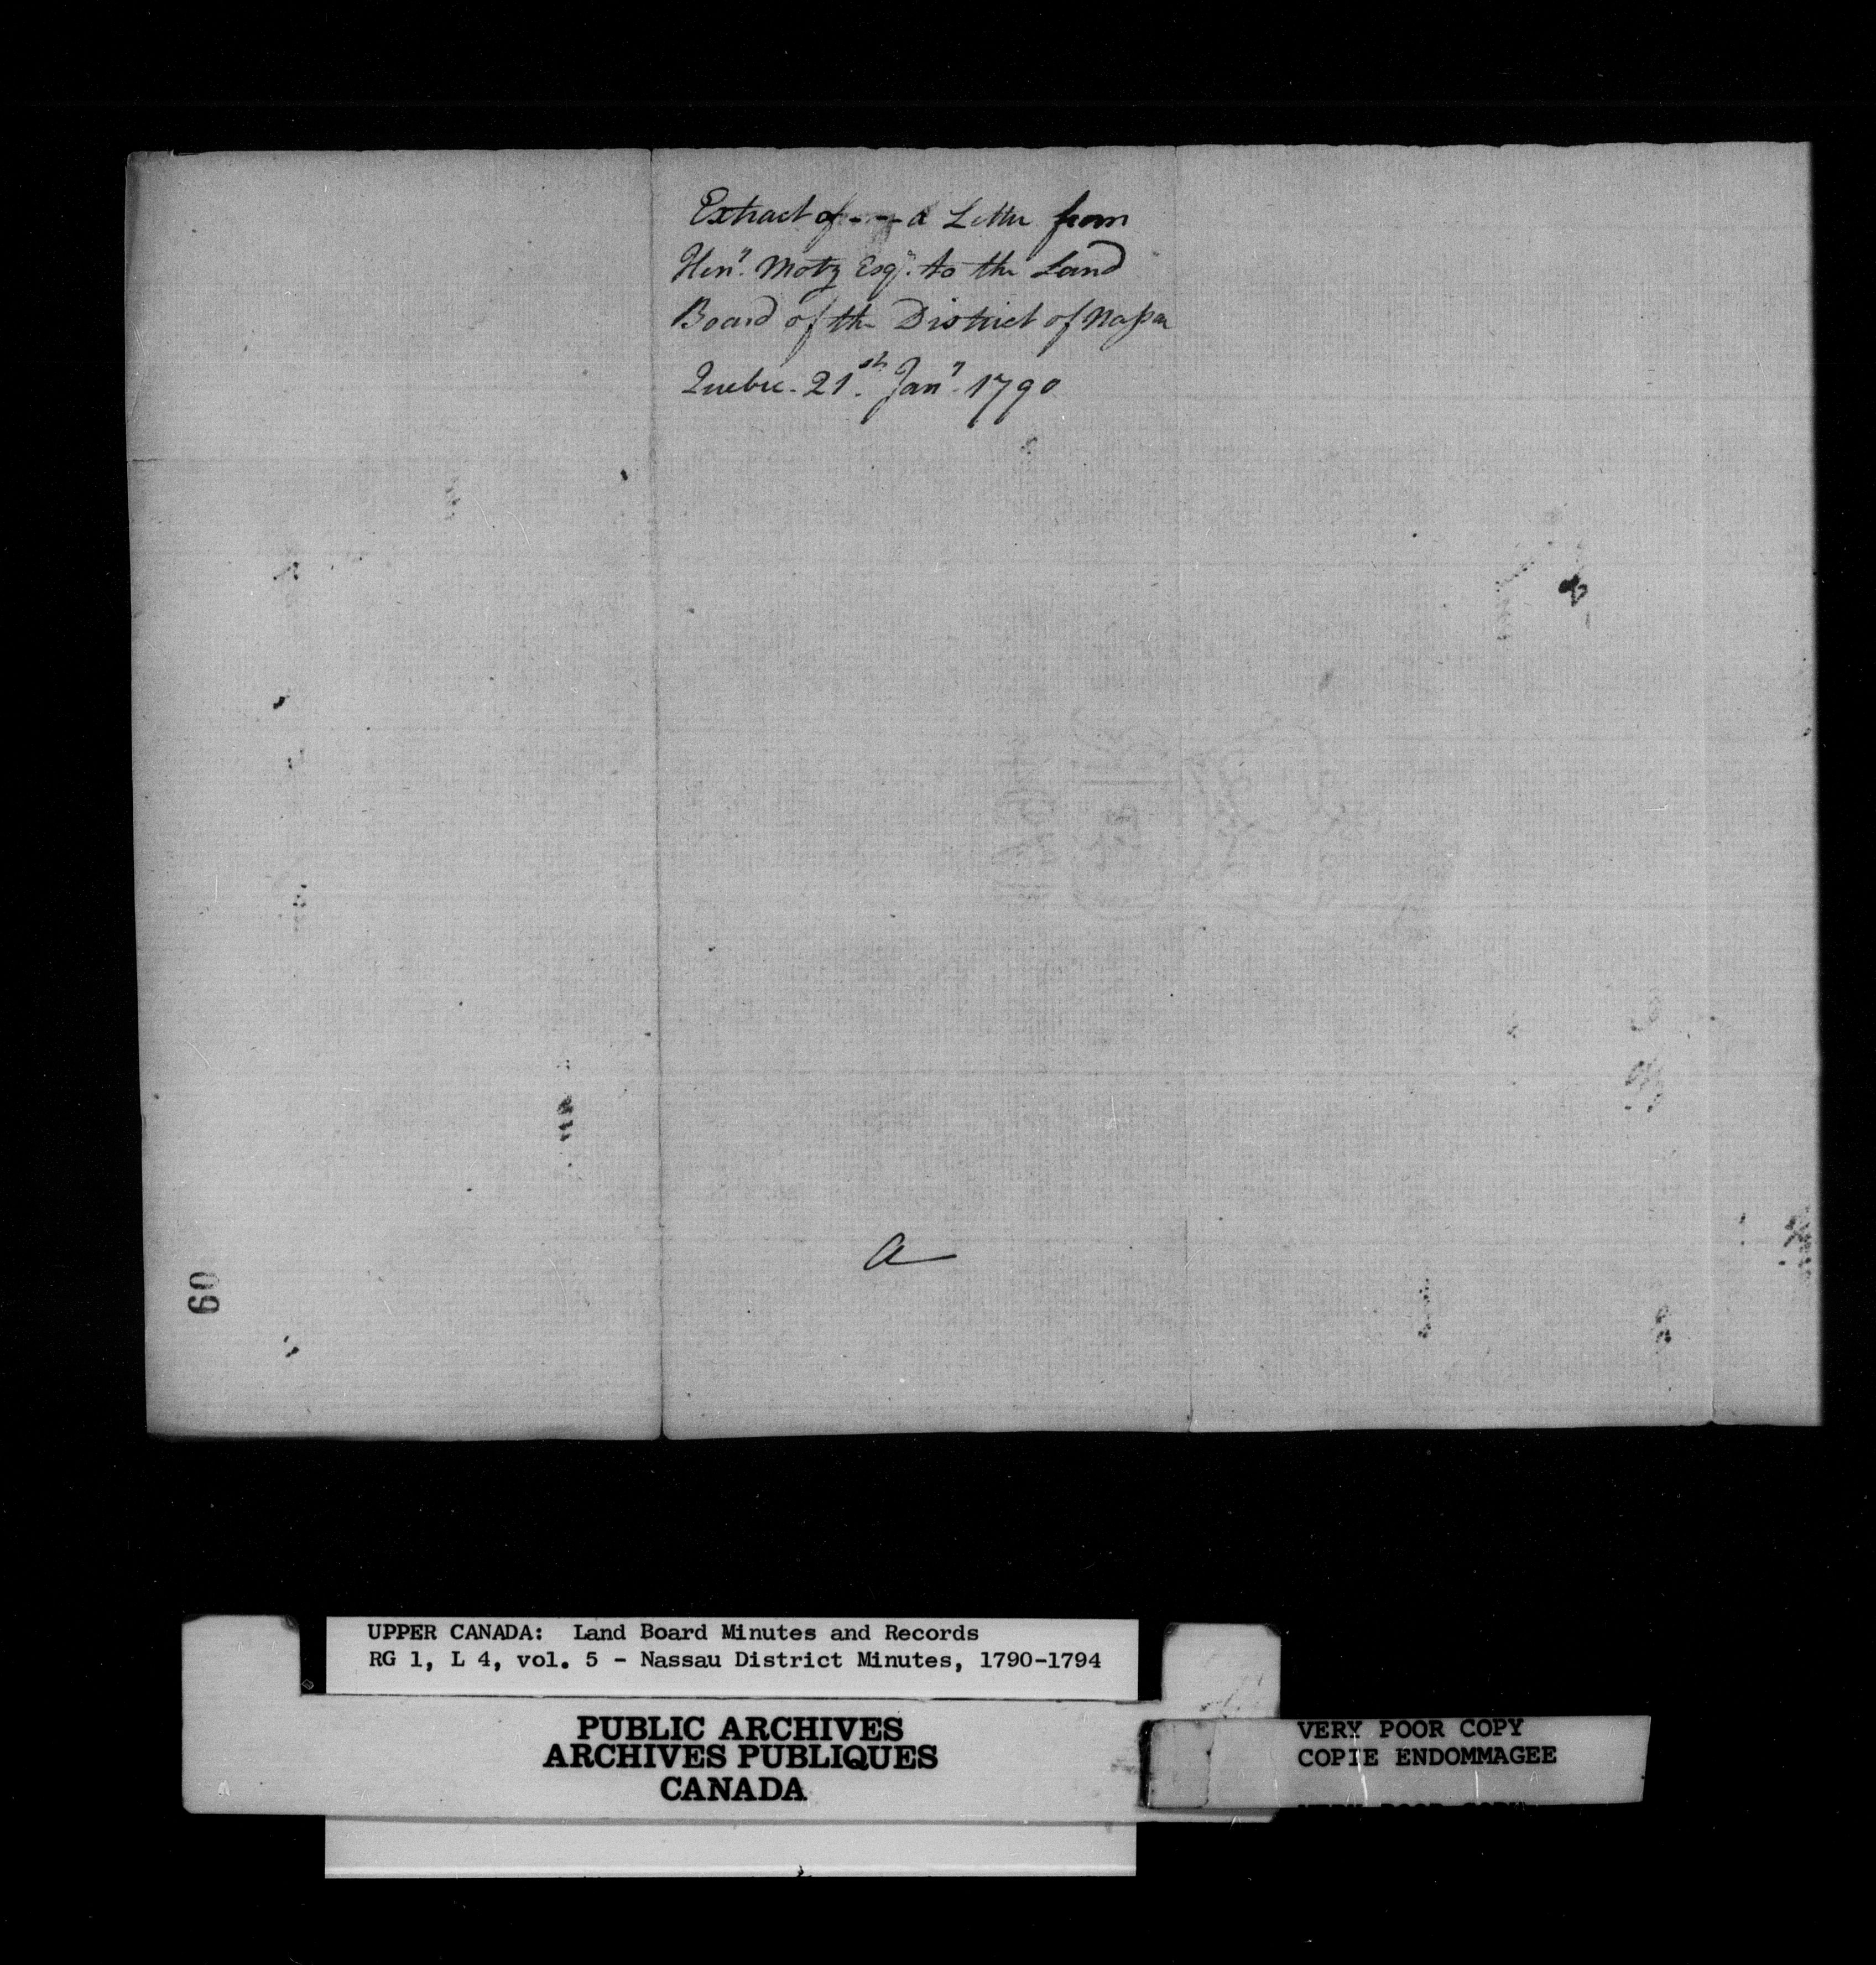 Extract of - - - a Letter from
Henʸ. Motz Esqʳ. to the Land
Board of the District of Nassau
Quebec. 21.ˢᵗ Janʸ. 1790
a
60
UPPER CANADA: Land Board Minutes and Records
RG 1, L 4, vol. 5 - Nassau District Minutes, 1790-1794
PUBLIC ARCHIVES
ARCHIVES PUBLIQUES
CANADA
VERY POOR COPY
COPIE ENDOMMAGEE